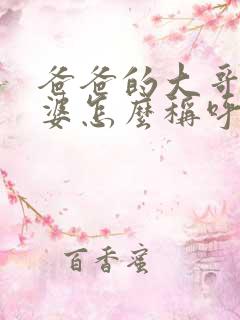 爸爸的大哥
婆怎麼稱呼
百香蜜